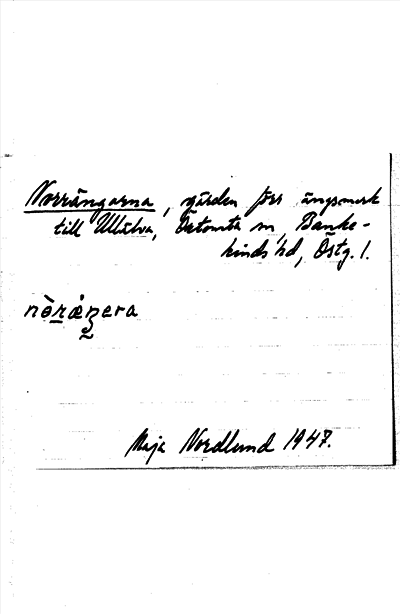 Norrängarna, gärden förr ängsmark
till Ullälva, Östomta sn, Banke-
kinds hd, Östg. l.
nòṟǽŋera
Maja Nordlund 1947.